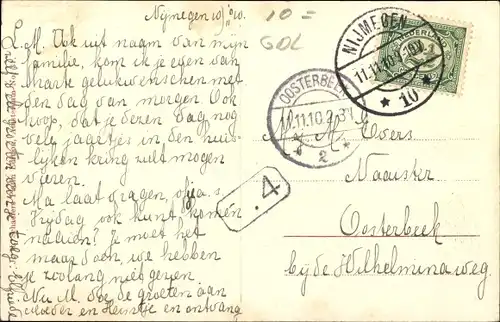 Nijmegen 10/11 '10.
L. M. Ook uit naam van mijn
familie, kom ik je even van
harte gelukwenschen met
den dag van morgen. Ook
hoop, dat je deren dag nog
vele jaartjes in den huis-
lijken kring zult mogen
vieren.
Ma laat vragen, of ja. s.
Vrijdag ook kunt komen
naaien? Je moet het
maar doen, we hebben
je zoolang niet gezien.
Nu M. doe de groeten aan
moeder en Heintje en ontvang
10=
GOL
NIJMEGEN
11.11.10
* 10 *
NEDERLAND
OOSTERBEEK
11.11.10.2
* 2 *
.4
M. Evers
Naaister
Oosterbeek
bij de Wilhelminaweg